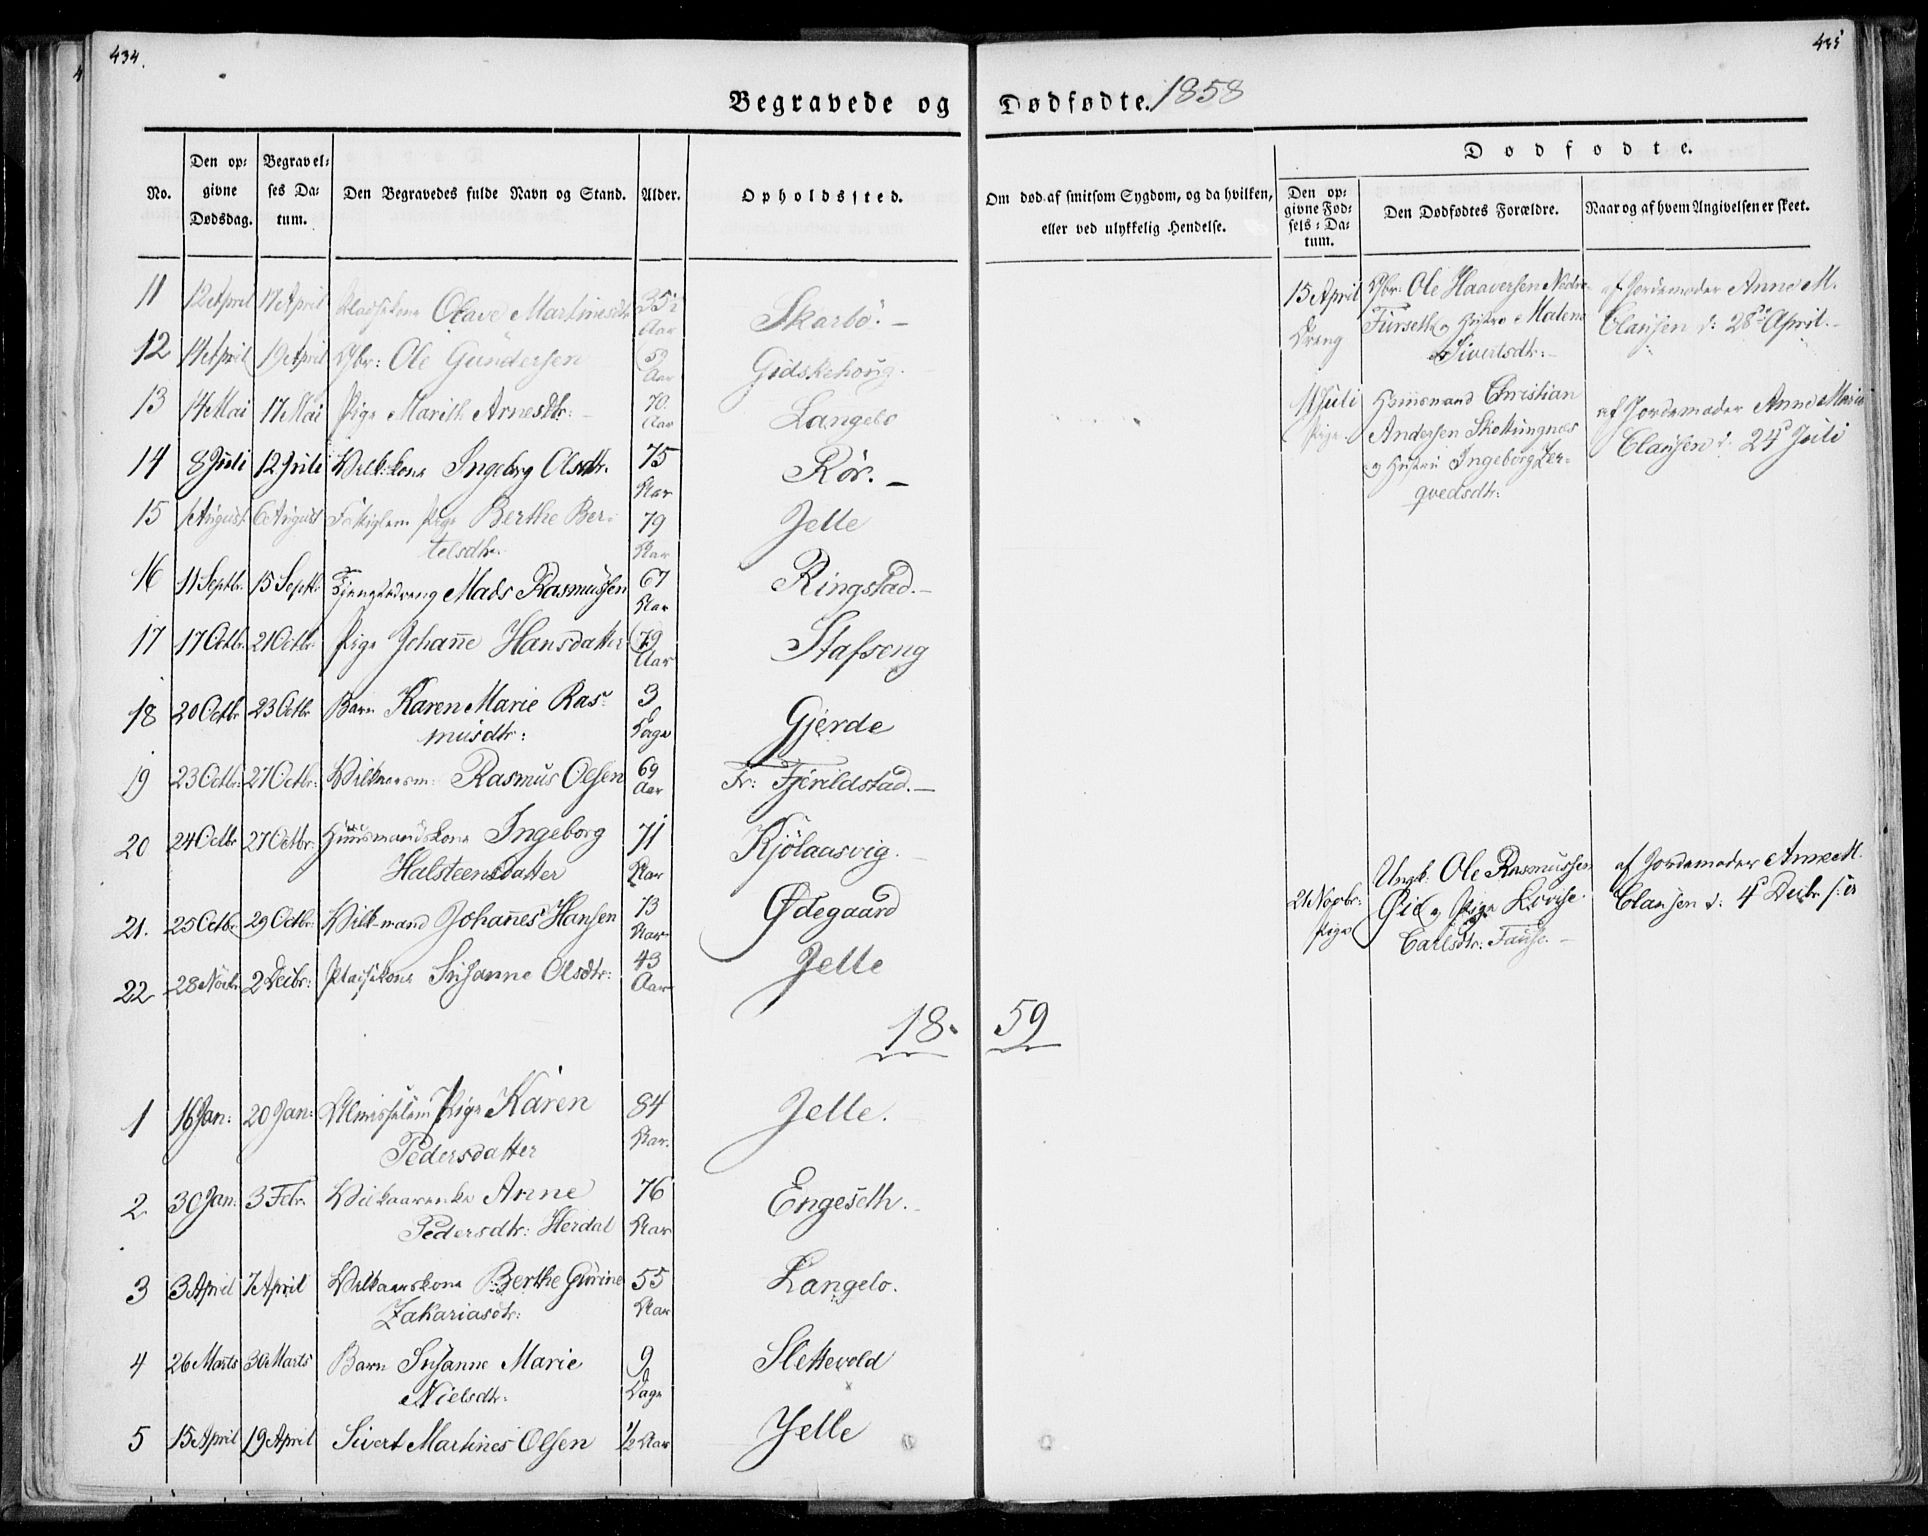 434.
435
Begravede og Dødfødte. 1858
No.
Den op-
givne
Dødsdag.
Begravel-
ses Da-
tum.
Den Begravedes fulde Navn og Stand.
Alder.
Opholdssted.
Om død af smitsom Sygdom, og da hvilken,
eller ved ulykkelig Hendelse.
Dødfødte.
Den op-
givne Fød-
sels-Da-
tum.
Den Dødfødtes Forældre.
Naar og af hvem Angivelsen er skeet.
11 12 April 17 April Pladsekone Olave Martinusdtr 35 Aar Skarbö.
12 14 April 19 April Gbr: Ole Gundersen 59 Aar Gidskehoug.
13 14 Mai 17 Mai Pige Marith Arnesdtr: 70 Aar Langelo
14 8 Juli 12 Juli Vilk.kone Ingebrg Olsdtr. 75 Aar Rör.
15 1 August 6 August Fattiglem Pige Berthe Ber-
telsdtr. 79 Aar Jelle
16 11 Septbr. 15 Septbr Mads Rasmussen 67 Aar Ringstad.
17 17 Octbr. 21 Octbr: Pige Johanne Hansdatter 79 Aar Stafseng
18 20 Octbr 23 Octbr Barn Karen Marie Ras-
musdtr: 3 Dage Gjerde
19 23 Octbr: 27 Octbr: Vilkaarsm: Rasmus Olsen 69 Aar Fr: Fjerildstad.
20 24 Octbr 27 Octbr: Huusmandskone Ingeborg
Halsteensdatter 71 Aar Kjölaasvig.
21. 25 Octbr 29 Octbr: Vilk-mand Johannes Hansen 73 Aar Ødegaard
22 28 Novbr 2 Decbr: Pladsekone Susanne Olsdtr: 43 Aar Jelle
18. 59
1 16 Jan: 20 Jan: Almisselem Pige Karen
Pedersdatter 84 Aar. Jelle.
2 30 Jan: 3 Febr. Vilkaarenke Anne
Pedersdtr: Herdal 76 Aar Engeseth.
3 3 April 7 April Vilkaarskone Berthe Gurine
Zakariasdtr: 55 Aar Langelo.
4 26 Marts 30 Marts Barn Susanne Marie
Nielsdtr: 9 Dage Slettevold
5 15 April 19 April Sivert Martines Olsen ½ Aar Jelle
15 April
Dreng
Gbr: Ole Haaversen Nedre
Furseth og Hustru Malene
Sivertsdtr:
af Jordemoder Anne M.
Clausen d: 28de April.
11 Juli
Pige
Huusmand Christian
Andersen Skottungnes
og Hustru Ingeborg
af Jordemoder Anne Marie
Clausen d: 24d Juli
21 Novbr:
Pige
Ungk. Ole Rasmussen
Øie og Pige Lovise
Carlsdtr:
af Jordemoder Anne M.
Clausen d: 4d Decbr